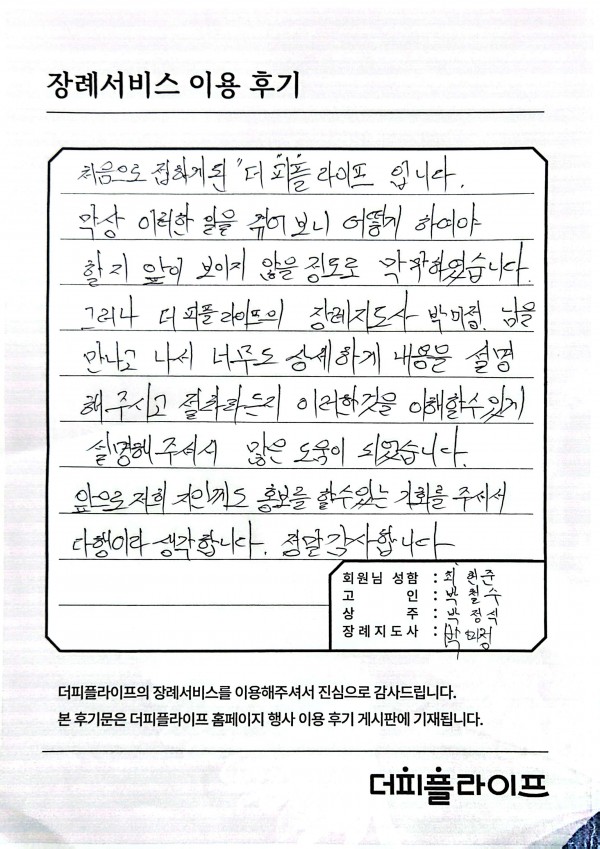 장례서비스 이용 후기
처음으로 접하게된 "더 피플 라이프 입니다.
막상 이러한 일을 겪어 보니 어떻게 하여야
할지 앞이 보이지 않을 정도로 막막하였습니다.
그러나 더피플라이프의 장례지도사 박미정 님을
만나고 나서 너무도 상세하게 내용을 설명
해 주시고 이러한것을 이해할수있게
설명해주셔서 많은 도움이 되었습니다.
앞으로 저희 지인께도 홍보를 할수있는 기회를 주셔서
다행이라 생각합니다. 정말감사합니다
회원님 성함 : 최현준
고 인 : 박철수
상 주 : 박정식
장례지도사 : 박미정
더피플라이프의 장례서비스를 이용해주셔서 진심으로 감사드립니다.
본 후기문은 더피플라이프 홈페이지 행사 이용 후기 게시판에 기재됩니다.
더피플라이프